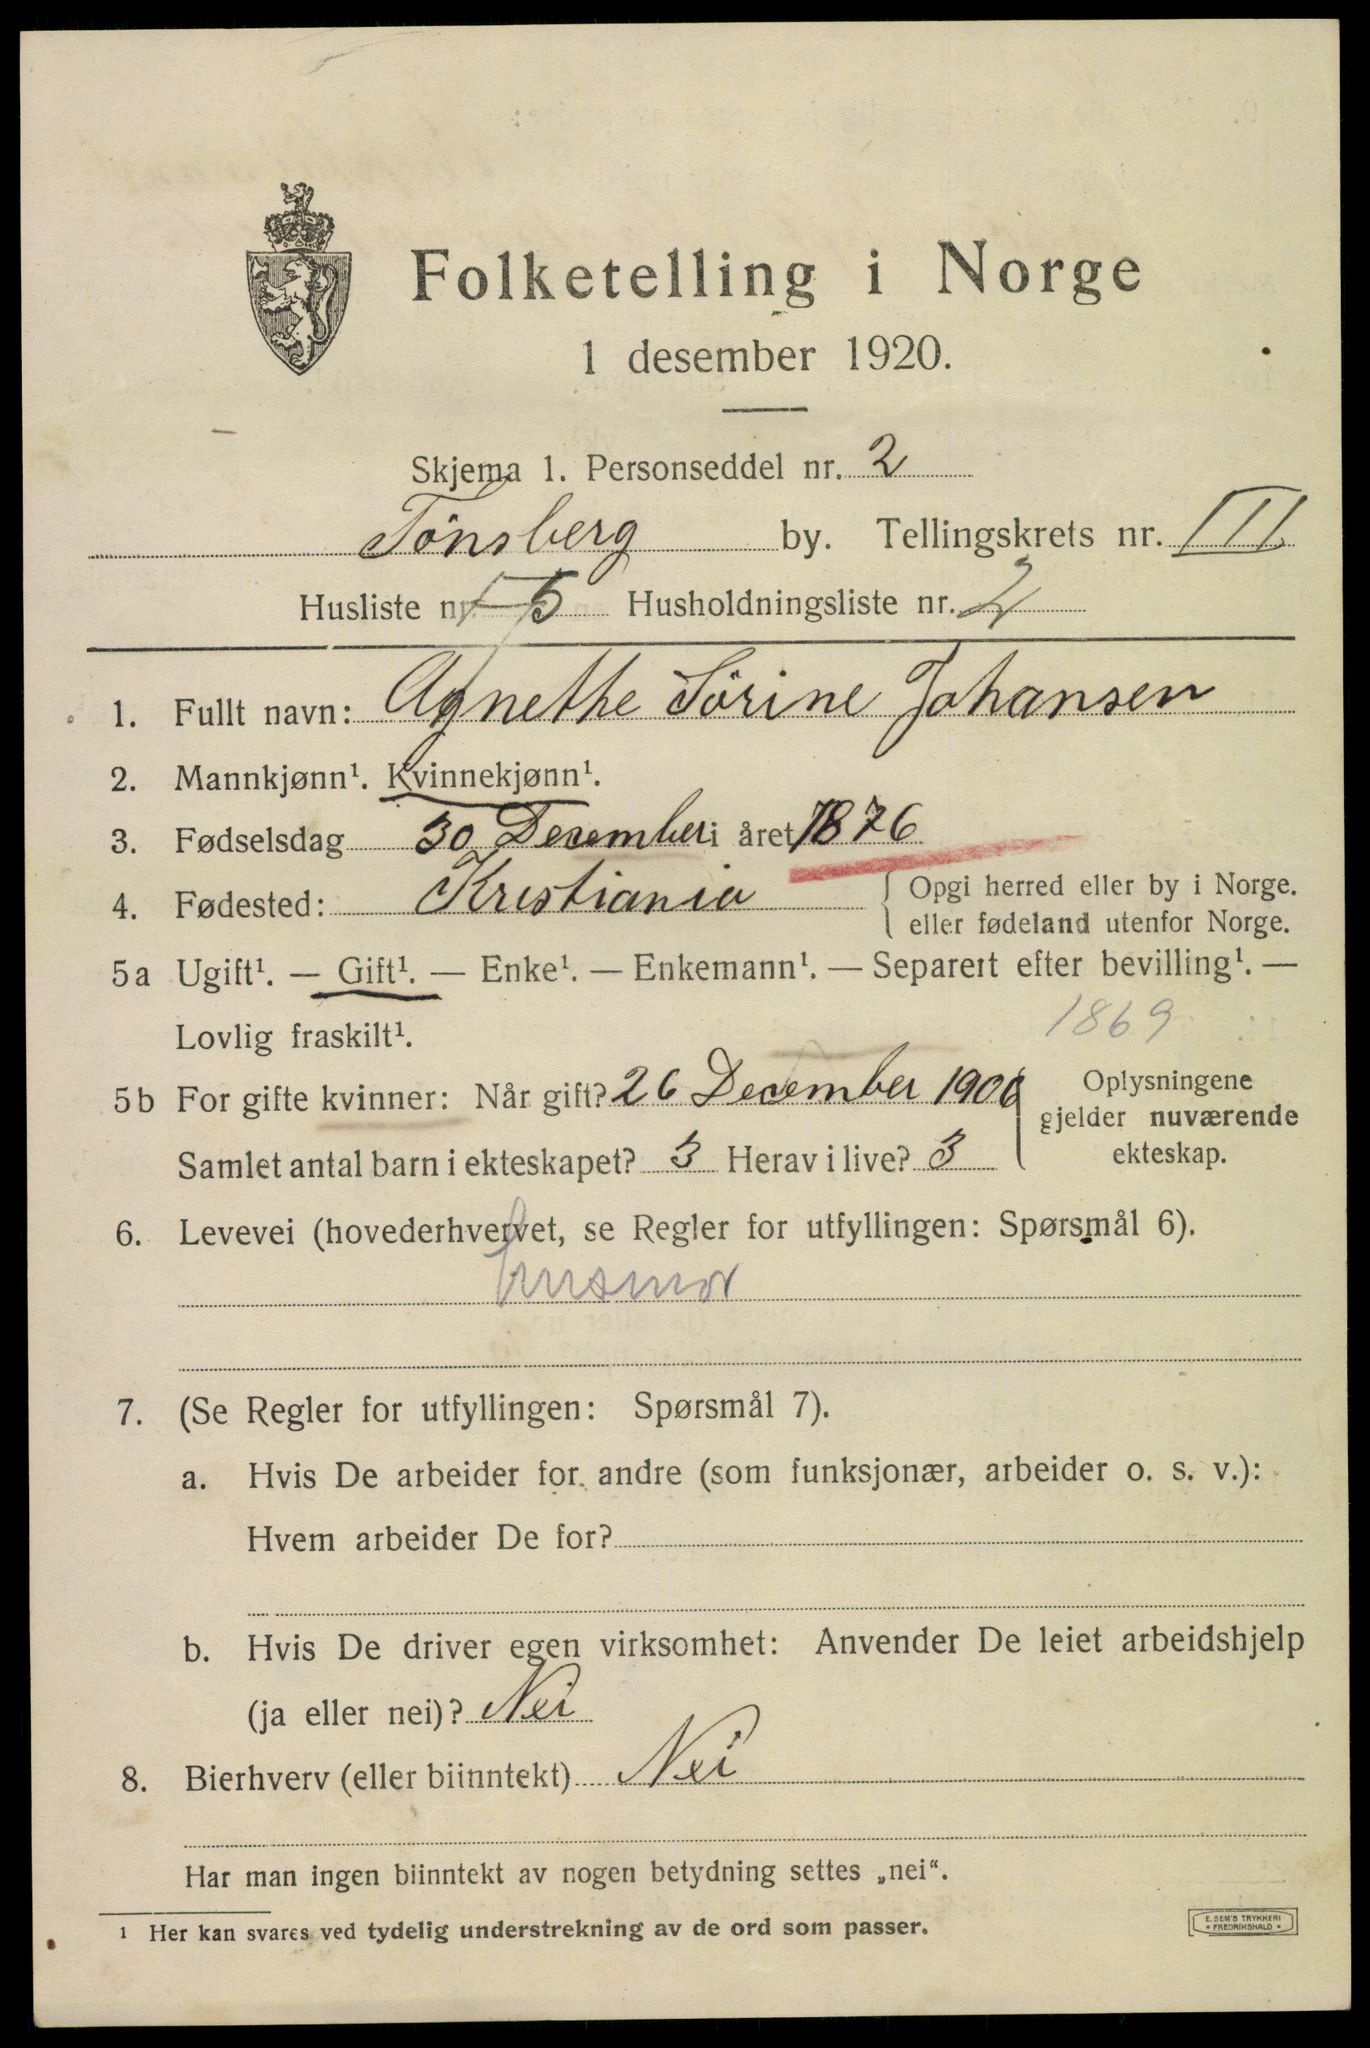 Folketelling i Norge
1 desember 1920.
Skjema 1. Personseddel nr. 2
Tönsberg by. Tellingskrets nr. III
Husliste nr. 5 Husholdningsliste nr. 2
1. Fullt navn: Agnethe Sörine Johansen
2. Mannkjønn¹. Kvinnekjønn¹.
3. Fødselsdag 30 December i året 1876
4. Fødested: Kristiania { Opgi herred eller by i Norge.
eller fødeland utenfor Norge.
5a Ugift¹. — Gift¹. — Enke¹. — Enkemann¹. — Separert efter bevilling¹. —
Lovlig fraskilt¹.
1869
5b For gifte kvinner: Når gift? 26 December 1906
Samlet antal barn i ekteskapet? 3 Herav i live? 3
Oplysningene
gjelder nuværende
ekteskap.
6. Levevei (hovederhvervet, se Regler for utfyllingen: Spørsmål 6).
Husmor
7. (Se Regler for utfyllingen: Spørsmål 7).
a. Hvis De arbeider for andre (som funksjonær, arbeider o. s. v.):
Hvem arbeider De for?
b. Hvis De driver egen virksomhet: Anvender De leiet arbeidshjelp
(ja eller nei)? Nei
8. Bierhverv (eller biinntekt) Nei
Har man ingen biinntekt av nogen betydning settes „nei“.
¹ Her kan svares ved tydelig understrekning av de ord som passer.
E. SEM'S TRYKKERI
• FREDRIKSHALD •